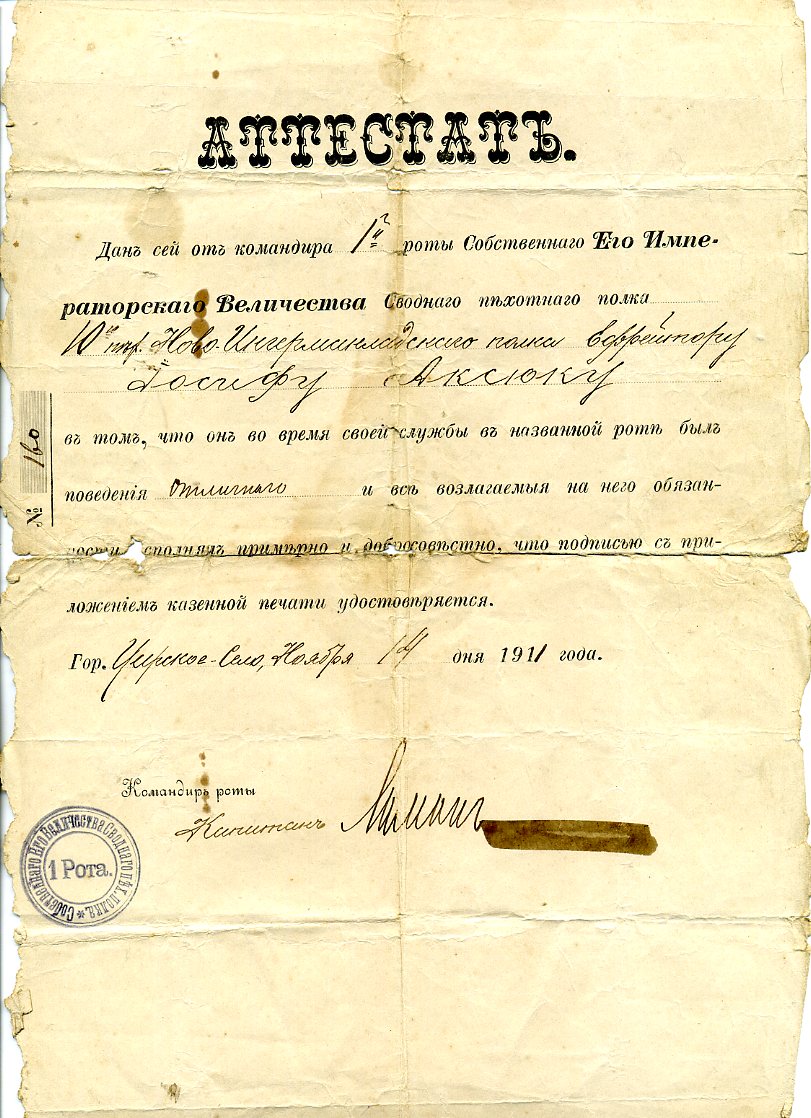 АТТЕСТАТЪ.
Данъ сей отъ командира 1й роты Собственнаго Его Импе-
раторскаго Величества Своднаго пѣхотнаго полка
10й Ново-Ингерманландскаго полка Ефрейтору
Іосифу Аксюку
въ томъ, что онъ во время своей службы въ названной ротѣ былъ
поведенія отличнаго и всѣ возлагаемыя на него обязан-
ности исполнялъ примѣрно и добросовѣстно, что подписью съ при-
ложеніемъ казенной печати удостовѣряется.
Гор. Царское-Село, Ноября 14 дня 1911 года.
Командиръ роты
Капитанъ
№ 160
Собственнаго Его Величества Своднаго пѣх. полка
1 Рота.